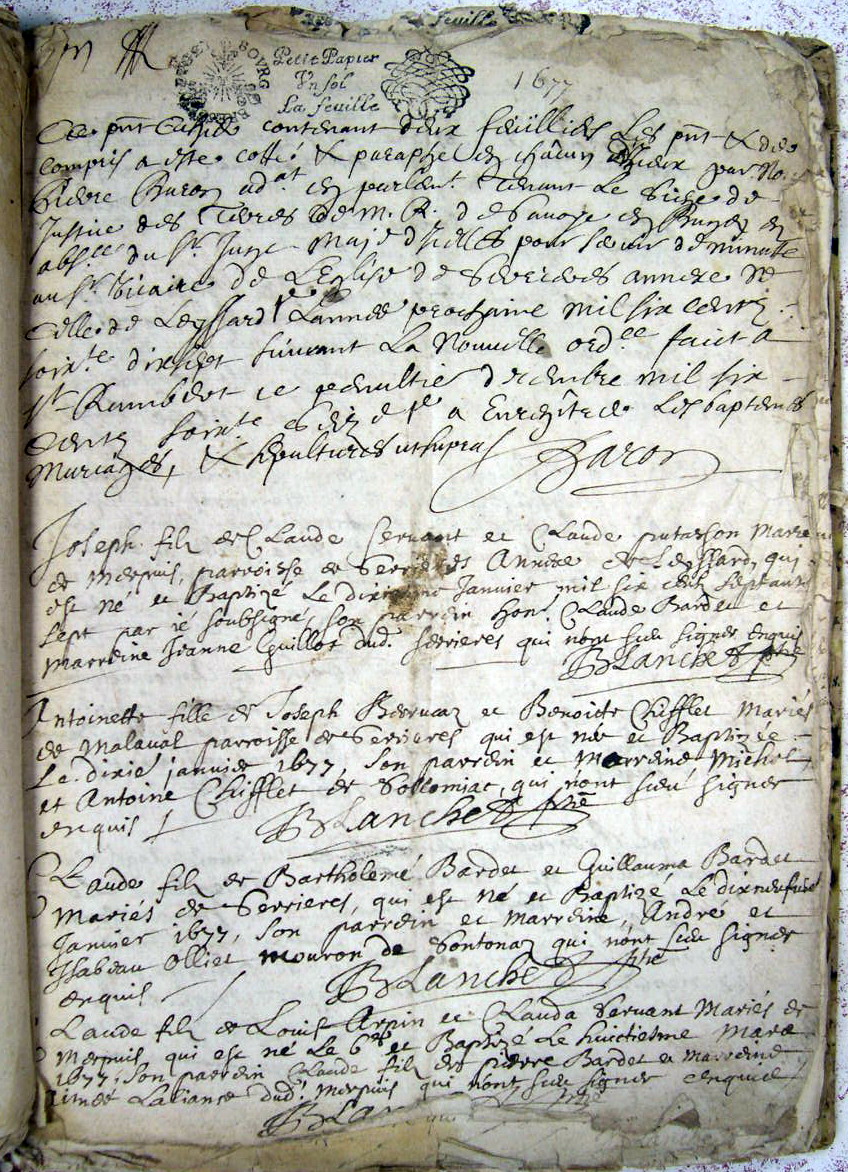 feuille
BOVRG
Petit Papier
Vn sol
La feuille
1677
Le pnt Cahier contenant deux feuillies Les pnt & der
compris a este cotté & paraphé en chacun d'iceux par Nous
Pierre Baron ad.at en parlem.t tenant le siege de
Justice des Terres de M. R. de Savoye en Bugey en
abs.ce du S.r Juge Maje d'icelles pour servir de minutte
au S.r Vicaire de L'Eglise de Serrieres annexe de
Celle de Leyssard L'année prochaine mil six cents
soix.te dix sept suivant La Nouvelle ord.ce faict a
S.t Rambert ce penultie decembre mil six
Cents soix.te Enregistrer Les baptemes
Mariages, & sepultures ut supra
Baron
Joseph fils de Claude Servant et Claude putasson Marie
de Merpuis, parroisse de Serrieres Annexe de Leyssard, qui
est né et Baptizé Le dixiesme Janvier mil six cent septante
sept par ie soubsigné, son parrein hon. Claude Bardet et
Marreine Jeanne Guillot dud. Serrieres qui n'ont sceu signer enquis
BLanchet ptre
Antoinette fille de Joseph et Benoicte Chifflet Mariés
de Malaval parroisse de Serrieres qui est née et Baptizée
Le dixie janvier 1677, Son parrein et Marreine Michel
et Antoine Chifflet de Sollomiac, qui n'ont sceu signer
enquis
BLanchet ptre
Claude fils de Bartholemé Bardet et Guillauma Bardet
Mariés de Serrieres, qui est né et Baptizé Le dixneufvie
Janvier 1677, Son parrein et Marreine, André et
Isabeau Olliet mouron de Sontonaz qui n'ont sceu signer
enquis
BLanchet ptre
Claude fils de Louis Arpin et Clauda Servant Mariés de
Merpuis, qui est né Le 6.e et Baptizé Le huictiesme Mars
1677, Son parrein Claude fils de pierre Bardet et Marreine
Laliance dud. Merpuis qui n'ont sceu signer enquis
BLan ptre